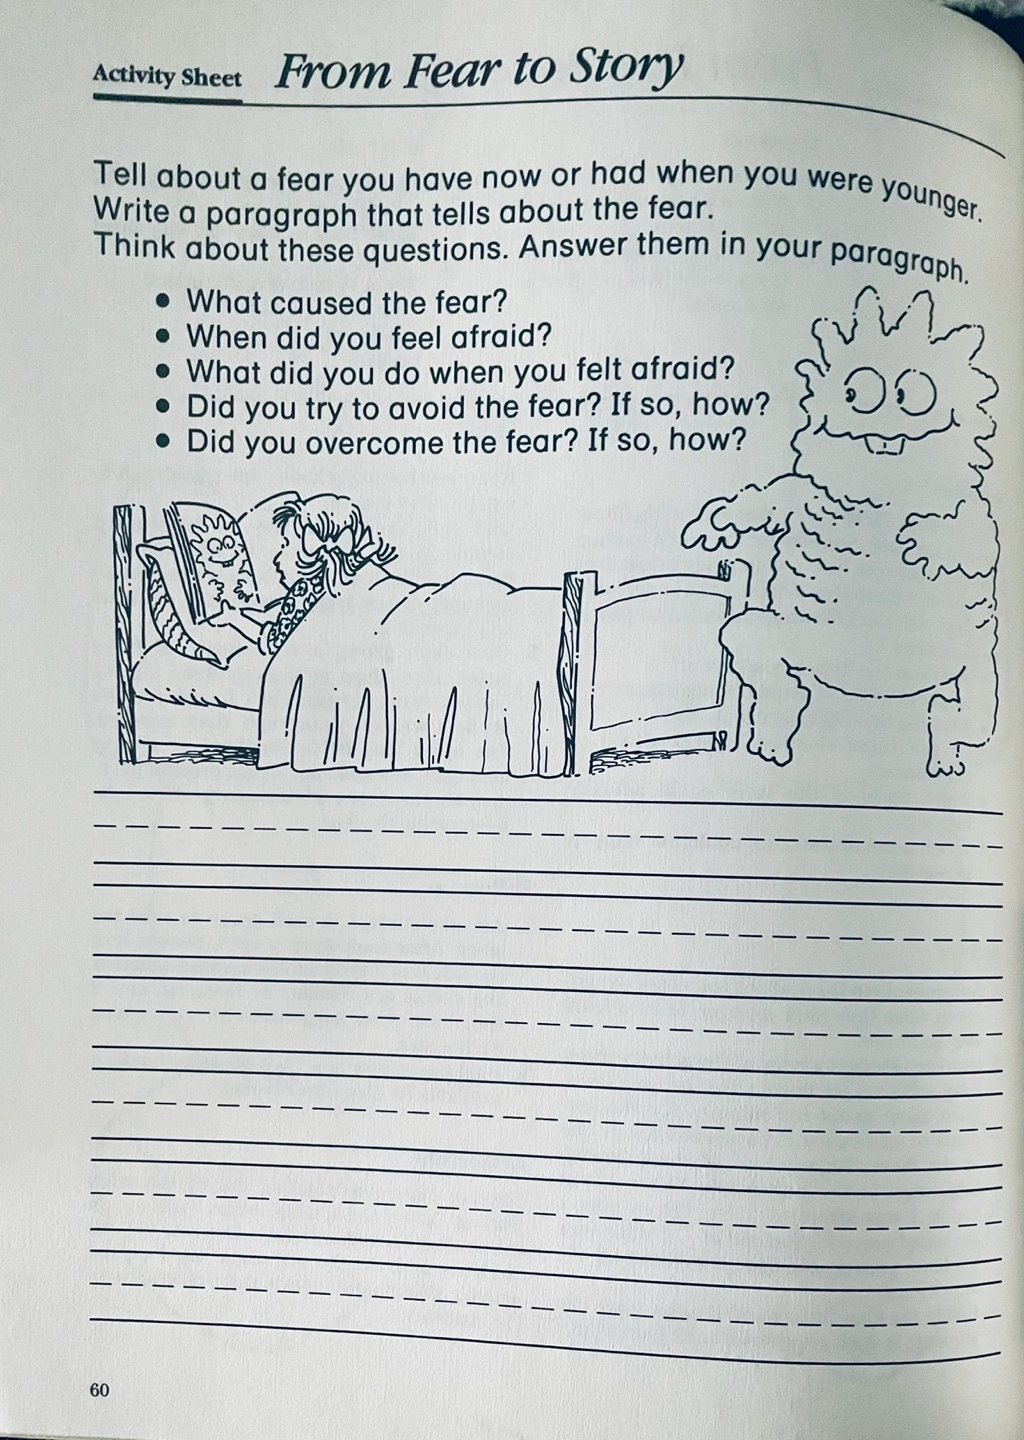 Activity Sheet From Fear to Story
Tell about a fear you have now or had when you were younger.
Write a paragraph that tells about the fear.
Think about these questions. Answer them in your paragraph.
• What caused the fear?
• When did you feel afraid?
• What did you do when you felt afraid?
• Did you try to avoid the fear? If so, how?
• Did you overcome the fear? If so, how?
60